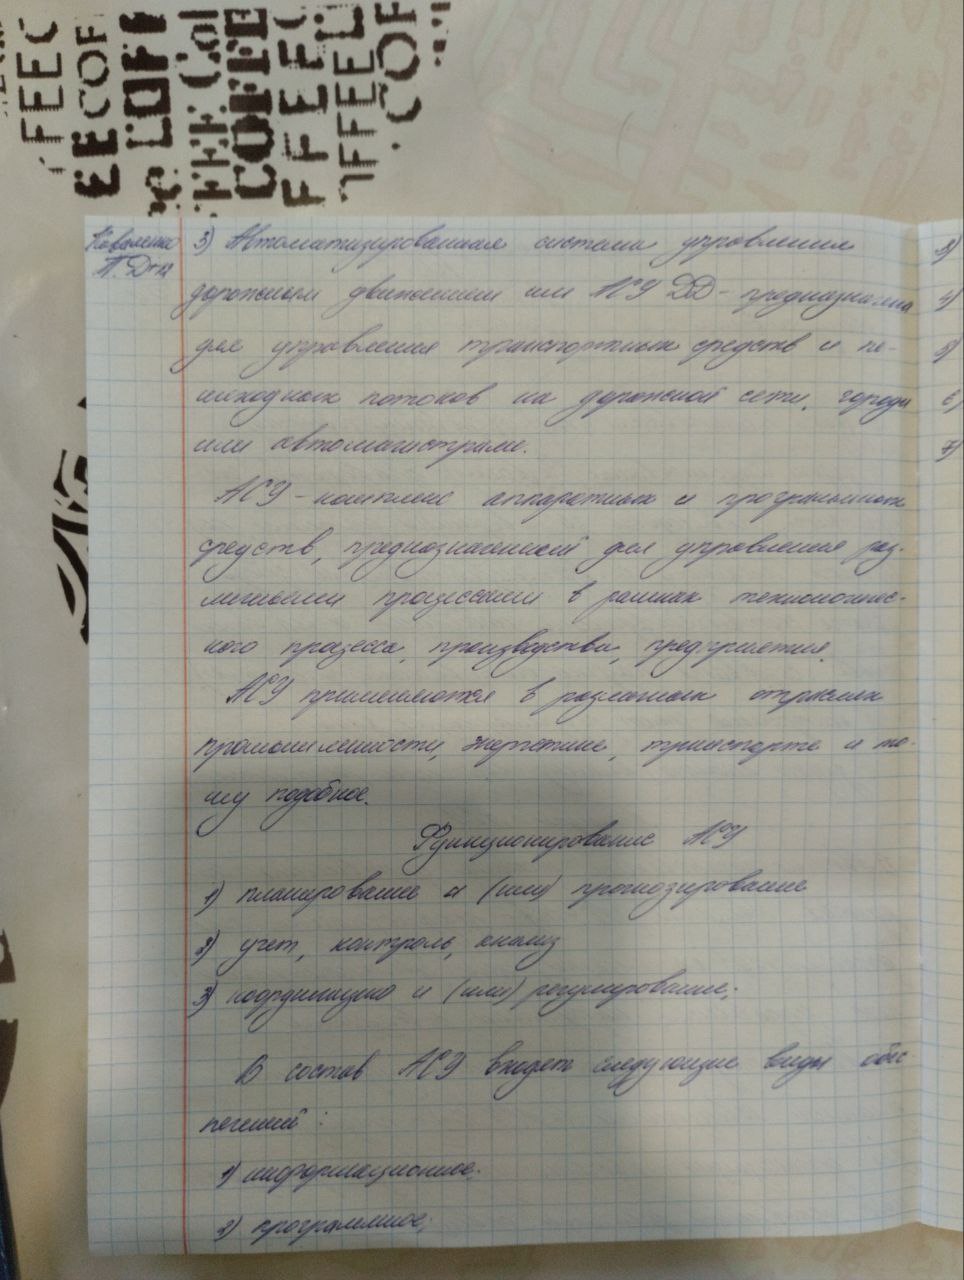 FFEEC
EECOF
COFF
FFEE Col
COFFEE
FFEEC
OFFEEL
COF
Коваленко
П. Д-12
3) Автоматизированная система управления
дорожным движением или АСУ ДД - предназначена
для управления транспортных средств и пе-
шеходных потоков на дорожной сети, города
или автомагистрале.
АСУ - комплекс аппаратных и програмных
средств, предназначенный для управления раз-
личными процессами в рамках технологичес-
кого процесса, производства, предприятия.
АСУ применяются в различных отраслях
промышленности, энергетике, транспорте и то-
му подобное.
Функционирование АСУ
1) планирование и (или) прогнозирование
2) учет, контроль, анализ
3) координацию и (или) регулирование;
В состав АСУ входят следующие виды обес
печений:
1) информационное;
2) программное;
3)
4)
5)
6)
7)